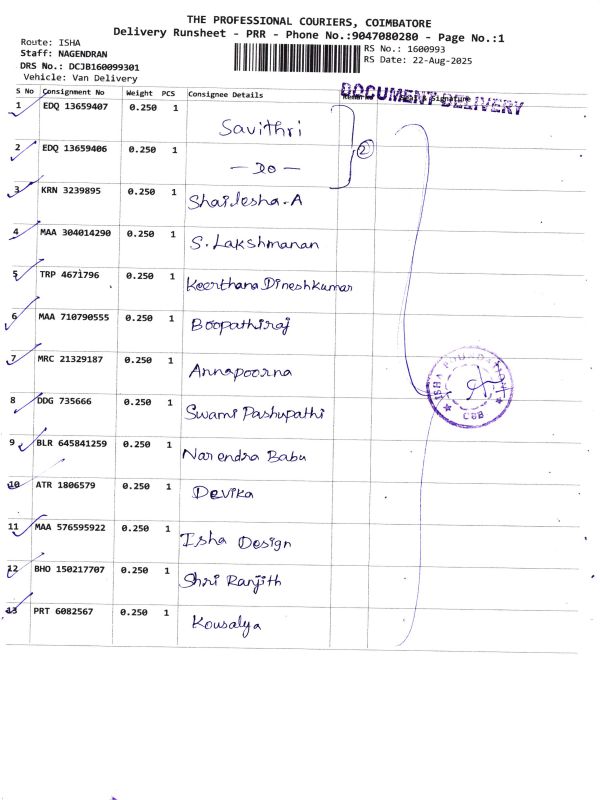 THE PROFESSIONAL COURIERS, COIMBATORE
Delivery Runsheet - PRR - Phone No.:9047080280 - Page No.:1
Route: ISHA
Staff: NAGENDRAN
DRS No.: DCJB160099301
Vehicle: Van Delivery
RS No.: 1600993
RS Date: 22-Aug-2025
S No Consignment No Weight PCS Consignee Details Signature
DOCUMENT DELIVERY
1 EDQ 13659407 0.250 1 Savithri
2 EDQ 13659406 0.250 1 — DO —
2
3 KRN 3239895 0.250 1 Shailesha.A
4 MAA 304014290 0.250 1 S. Lakshmanan
5 TRP 4671796 0.250 1 Keerthana Dineshkumar
6 MAA 710790555 0.250 1 Boopathiraj
7 MRC 21329187 0.250 1 Annapoorna
8 DDG 735666 0.250 1 Swami Pashupathi
9 BLR 645841259 0.250 1 Narendra Babu
10 ATR 1806579 0.250 1 Devika
11 MAA 576595922 0.250 1 Isha Design
12 BHO 150217707 0.250 1 Shri Ranjith
13 PRT 6082567 0.250 1 Kousalya
ISHA FOUNDATION
CBB